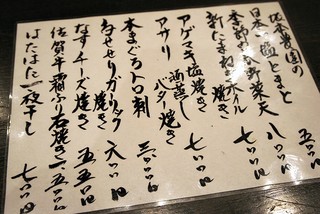 佐賀農園の
日本一塩とまと 五〇〇円
季節の春野菜天 八〇〇円
新たまねぎホイル焼き 七〇〇円
アゲマキ塩焼き
アサリ 酒蒸し バター焼き 七〇〇円
本まぐろトロ刺 三〇〇〇円
なすチーズ焼き 五五〇円
佐賀牛霜ふり石焼き 一、五〇〇円
はたはた一夜干し 七〇〇円